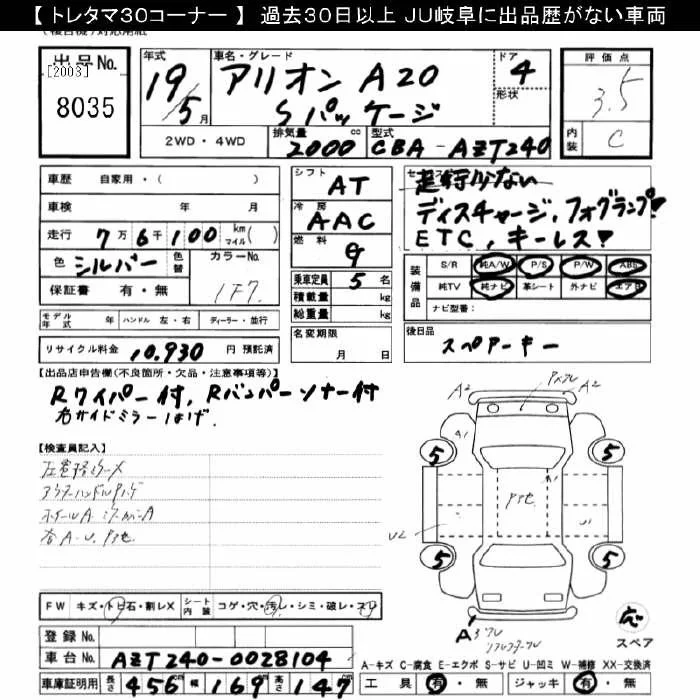 【 トレタマ30コーナー 】 過去30日以上 JU岐阜に出品歴がない車両
出品No. [2003] 8035
年式 19/5月
車名・グレード アリオン A20 Sパッケージ
ドア 4
形状
評価点 3.5
内装 C
2WD・4WD 排気量 2000 cc 型式 CBA-AZT240
車歴 自家用・( )
車検 年 月
走行 7万6千100 km マイル( )
色 シルバー 色替 カラーNo. 1F7
保証書 有・無
シフト AT
冷房 AAC
燃料 G
乗車定員 5 名
積載量 kg
総重量 kg
ディスチャージ, フォグランプ!
ETC, キーレス!
装備品 S/R 純A/W P/S P/W ABS
純TV 純ナビ 革シート 外ナビ エアB
ナビ型番:
モデル年式 年 ハンドル 左・右 ディーラー・並行
名変期限 月 日
後日品 スペアーキー
リサイクル料金 10,930 円 預託済
【出品店申告欄(不良箇所・欠品・注意事項等)】
Rワイパー付, Rバンパーソナー付
右サイドミラーはげ.
【検査員記入】
A2 A2
A1
5 5
U2 U1
5 5
A
スペア
FW キズ・トビ石・割レX シート内装 コゲ・穴・汚レ・シミ・破レ・スレ
登録No.
車台No. AZT240-0028104
車庫証明用 長さ 456 幅 169 高さ 147
A-キズ C-腐食 E-エクボ S-サビ U-凹ミ W-補修 XX-交換済
工具 有・無 ジャッキ 有・無